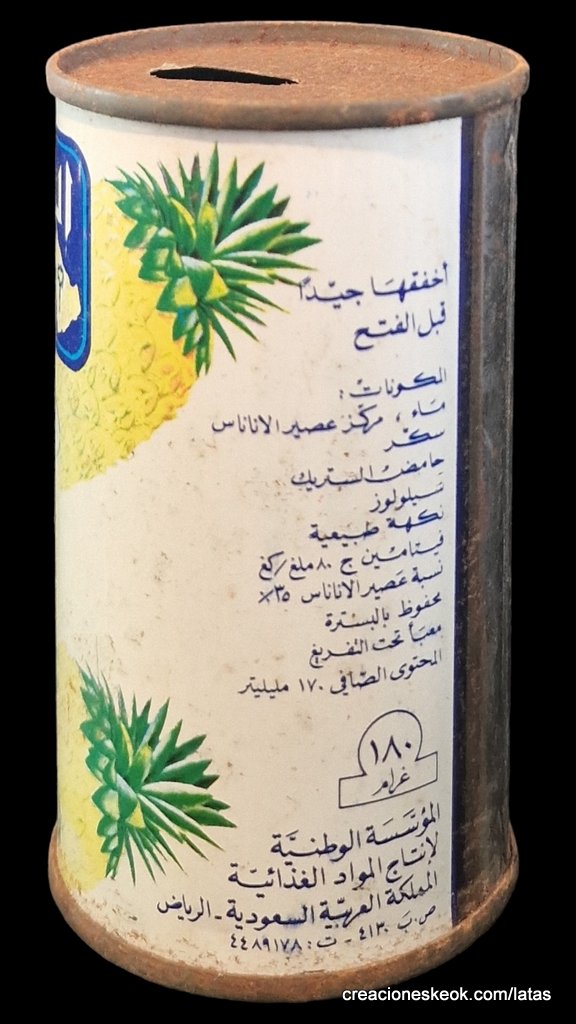 أخفقها جيّدًا
قبل الفتح
المكونات :
ماء ، مركّز عصير الاناناس
سكّر
حامض الستريك
سيلولوز
نكهة طبيعية
فيتامين ج ٨٠ ملغ/كغ
نسبة عصير الاناناس ٣٥٪
محفوظ بالبسترة
معبأ تحت التفريغ
المحتوى الصّافي ١٧٠ مليليتر
١٨٠
غرام
المؤسّسَة الوطنيَّة
لإنتاج المواد الغذائيّة
المملكة العربيّة السعودية - الرياض
ص.ب ٤١٣٠ - ت : ٤٤٨٩١٧٨
creacioneskeok.com/latas